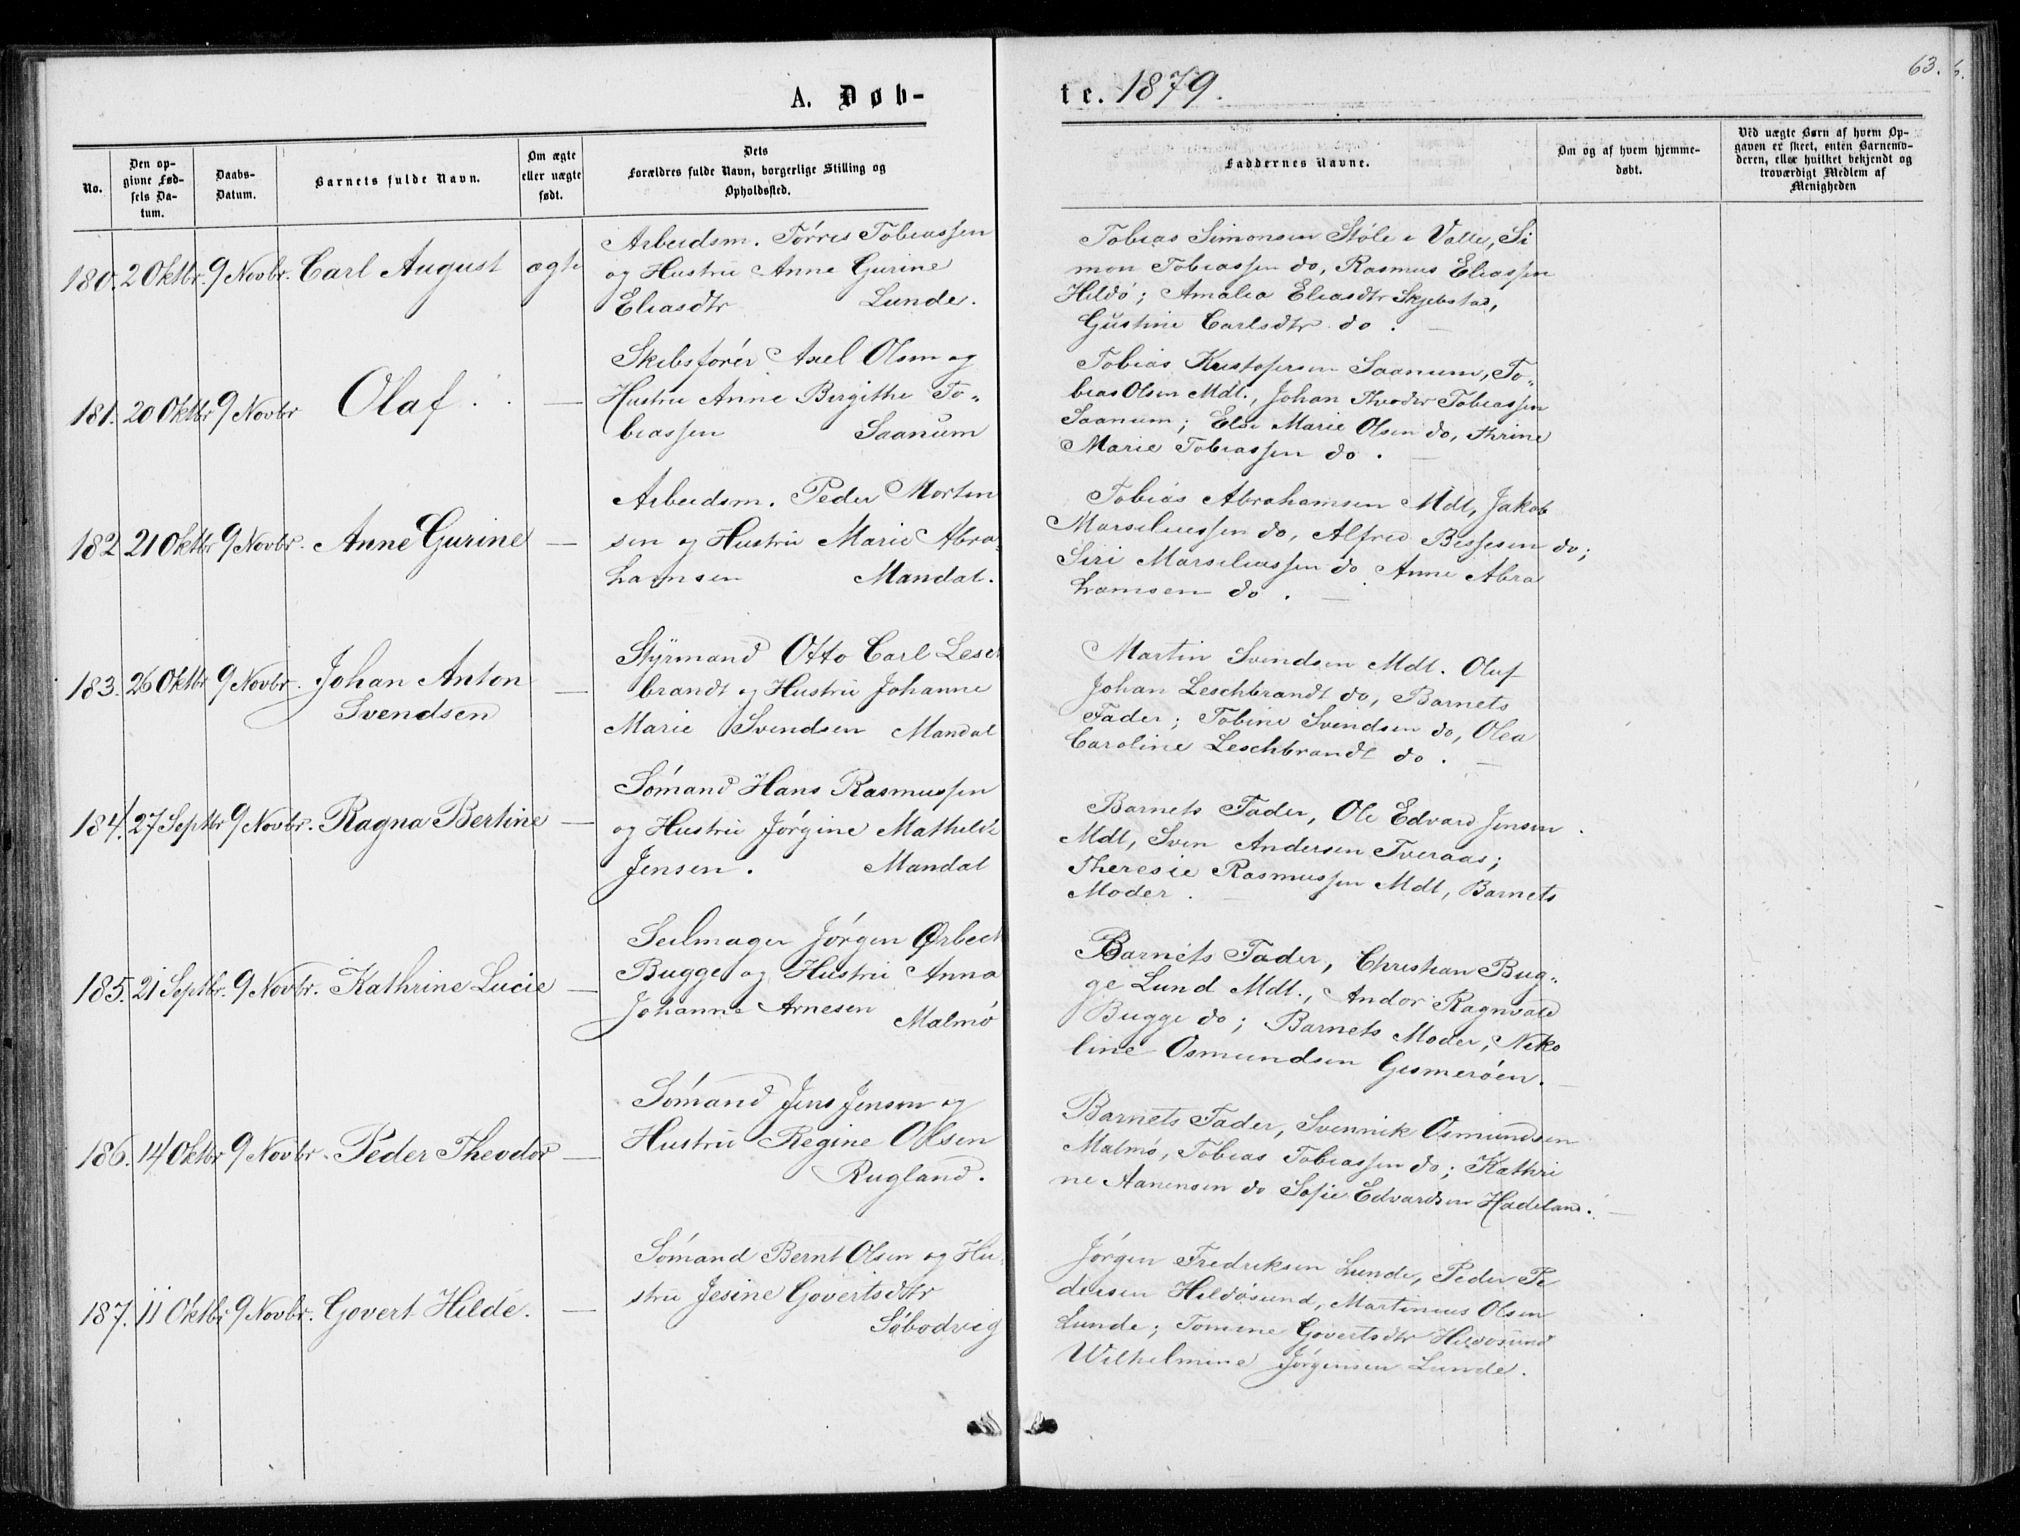 A. Døb-
te. 1879.
63.
No.
Den op-
givne Fød-
sels Da-
tum.
Daabs-
Datum.
Barnets fulde Navn.
Om ægte
eller uægte
født.
Dets
Forældres fulde Navn, borgerlige Stilling og
Opholdssted.
Faddernes Navne.
Om og af hvem hjemme-
døbt.
Ved uægte Børn af hvem Op-
gaven er skeet, enten Barnemo-
deren, eller hvilket bekjendt og
troværdigt Medlem af
Menigheden
180. 2 Oktbr. 9 Novbr. Carl August ægte
Arbeidsm. Tørres Tobiassen
og Hustru Anne Gurine
Eliasdtr Lunde.
Tobias Simonsen Støle i Valle, Si
mon Tobiassen do, Rasmus Eliassen
Hildø; Amalia Eliasdtr Skjebstad,
Gustine Carlsdtr do.
181. 20 Oktbr 9 Novbr Olaf. —
Skibsfører Axel Olsen og
Hustru Anne Birgithe To-
biassen Saanum
Tobias Kristofersen Saanum, To-
bias Olsen Mdl., Johan Theodor Tobiassen
Saanum; Else Marie Olsen do, Thrine
Marie Tobiassen do.
182 21 Oktbr 9 Novbr. Anne Gurine —
Arbeidsm. Peder Morten
sen og Hustru Marie Abra-
hamsen Mandal.
Tobias Abrahamsen Mdl, Jakob
Marseliussen do, Alfred Bessesen do;
Siri Marseliussen do Anne Abra
hamsen do.
183. 26 Oktbr 9 Novbr. Johan Anton
Svendsen —
Styrmand Otto Carl Lesch
brandt og Hustru Johanne
Marie Svendsen Mandal
Martin Svendsen Mdl. Oluf
Johan Leschbrandt do, Barnets
Fader; Tobine Svendsen do, Olea
Caroline Leschbrandt do.
184. 27 Septbr 9 Novbr. Ragna Bertine —
Sømand Hans Rasmussen
og Hustru Jørgine Mathilde
Jensen. Mandal
Barnets Fader, Ole Edvard Jensen
Mdl, Sven Andersen Tveraas;
Theresie Rasmussen Mdl, Barnets
Moder.
185. 21 Septbr. 9 Novbr. Kathrine Lucie —
Seilmager Jørgen Ørbeck
Bugge og Hustru Anna
Johanne Arnesen Malmø
Barnets Fader, Christian Bug-
ge Lund Mdl., Andor Ragnvald
Bugge do; Barnets Moder, Niko
line Osmundsen Gismerøen.
186. 14 Oktbr 9 Novbr. Peder Theodor —
Sømand Jens Jensen og
Hustru Regine Olsen
Rugland.
Barnets Fader, Svennik Osmundsen
Malmø, Tobias Tobiassen do; Kathri
ne Aanensen do Sofie Edvardsen Hadeland.
187. 11 Oktbr 9 Novbr. Govert Hilde. —
Sømand Bernt Olsen og Hu-
stru Jesine Govertsdtr
Søbodvig
Jørgen Fredriksen Lunde, Peder Pe
dersen Hildøsund, Martinius Olsen
Lunde; Tomine Govertsdtr Hildøsund
Wilhelmine Jørgensen Lunde.